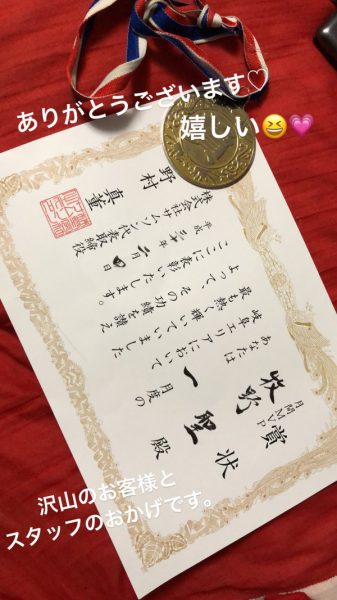 ありがとうございます♡
嬉しい😆💗
月間MVP
賞状
牧野 聖 殿
あなたは 一月度の
岐阜エリアにおいて
最も熱く輝いていました
よって、その功績を讃え
ここに表彰いたします。
平成 年 二月 日
株式会社 代表取締役
野村 真
沢山のお客様と
スタッフのおかげです。